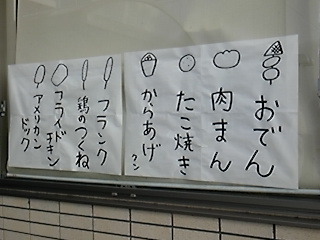 おでん
肉まん
たこ焼き
からあげ
クン
フランク
鶏のつくね
フライド
チキン
アメリカン
ドック